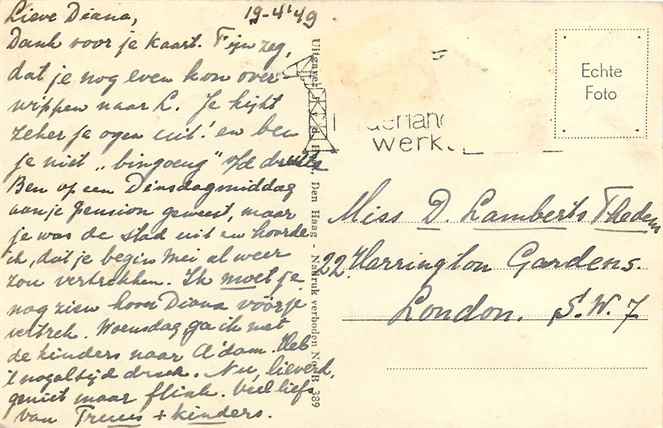 19-4-'49
Lieve Diana,
Dank voor je kaart. Fijn zeg,
dat je nog even kon over-
wippen naar L. Je kijkt
zeker je ogen uit! en ben
je niet „bingoeng" v/d drukte
Ben op een Dinsdagmiddag
aan je pension geweest, maar
je was de stad uit en hoorde
ik, dat je begin Mei al weer
zou vertrekken. Ik moet je
nog zien hoor Diana vóór je
vertrek. Woensdag ga ik met
de kinders naar A'dam. Heb
't nogal tijd druk. Nu, lieverd,
geniet maar flink. Veel liefs
van Truus + kinders.
Uitgave:
Den Haag - Nadruk verboden No. B 389
derland
werk
Echte
Foto
Miss D. Lamberts Thedens
22 Harrington Gardens.
London. S.W. 7